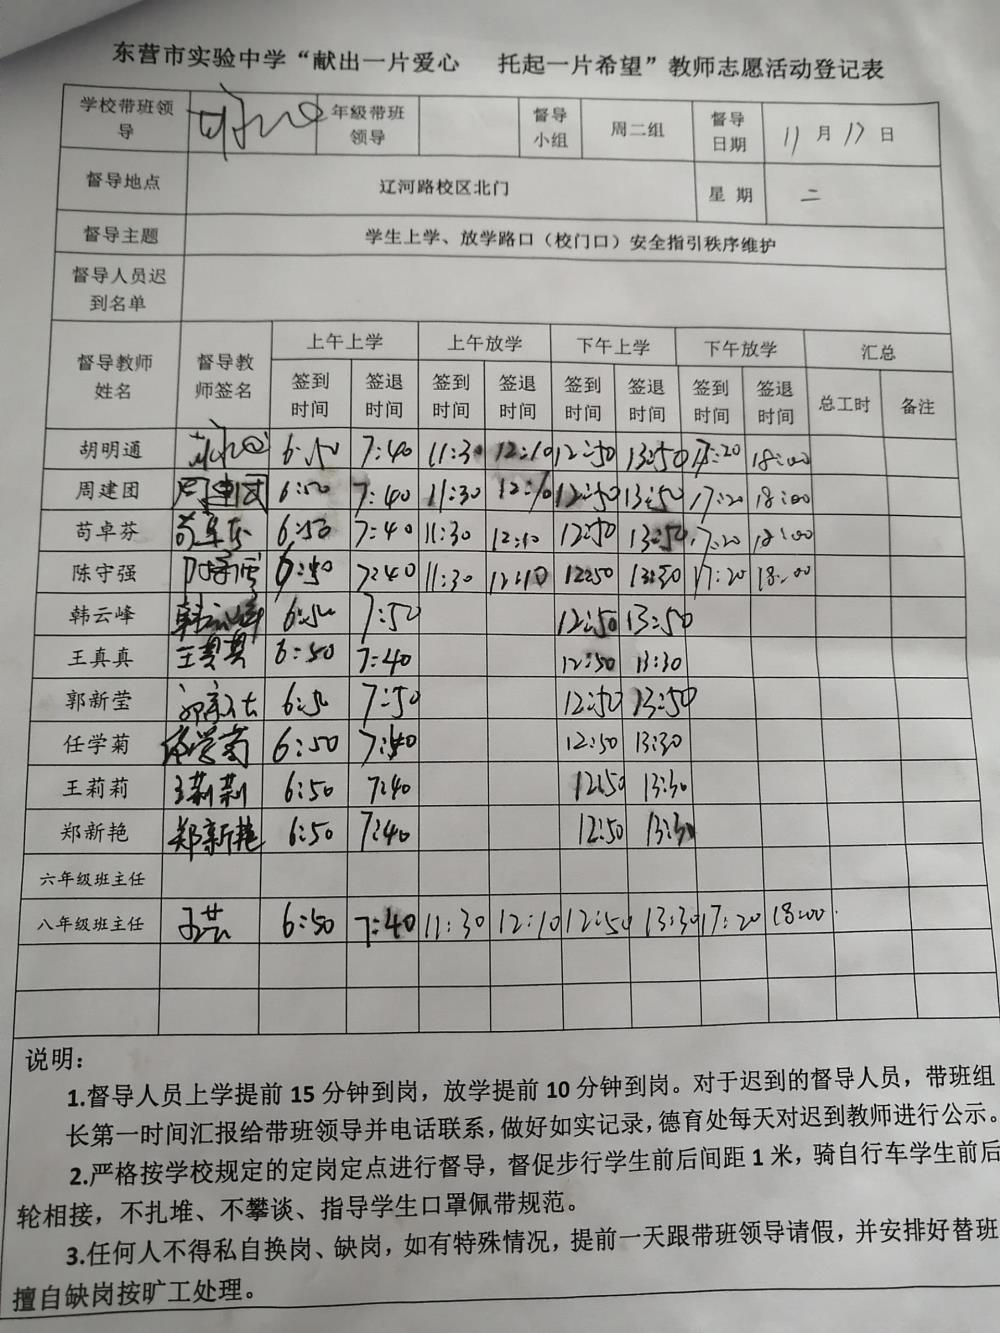 东营市实验中学“献出一片爱心 托起一片希望”教师志愿活动登记表
学校带班领导 年级带班领导 督导小组 周二组 督导日期 11月17日
督导地点 辽河路校区北门 星期 二
督导主题 学生上学、放学路口（校门口）安全指引秩序维护
督导人员迟到名单
督导教师姓名 督导教师签名 上午上学 上午放学 下午上学 下午放学 汇总
签到时间 签退时间 签到时间 签退时间 签到时间 签退时间 签到时间 签退时间 总工时 备注
胡明通 6:50 7:40 11:30 12:10 12:50 13:50 17:20 18:00
周建团 周建团 6:50 7:40 11:30 12:10 12:50 13:50 17:20 18:00
苟卓芬 苟卓芬 6:50 7:40 11:30 12:10 12:50 13:50 17:20 18:00
陈守强 6:50 7:40 11:30 12:10 12:50 13:30 17:20 18:00
韩云峰 韩云峰 6:50 7:50 12:50 13:50
王真真 王真真 6:50 7:40 12:50 13:30
郭新莹 6:50 7:50 12:50 13:50
任学菊 任学菊 6:50 7:40 12:50 13:30
王莉莉 王莉莉 6:50 7:40 12:50 13:30
郑新艳 郑新艳 6:50 7:40 12:50 13:30
六年级班主任
八年级班主任 6:50 7:40 11:30 12:10 12:50 13:30 17:20 18:00
说明：
1.督导人员上学提前 15 分钟到岗，放学提前 10 分钟到岗。对于迟到的督导人员，带班组
长第一时间汇报给带班领导并电话联系，做好如实记录，德育处每天对迟到教师进行公示。
2.严格按学校规定的定岗定点进行督导，督促步行学生前后间距 1 米，骑自行车学生前后
轮相接，不扎堆、不攀谈、指导学生口罩佩带规范。
3.任何人不得私自换岗、缺岗，如有特殊情况，提前一天跟带班领导请假，并安排好替班
擅自缺岗按旷工处理。